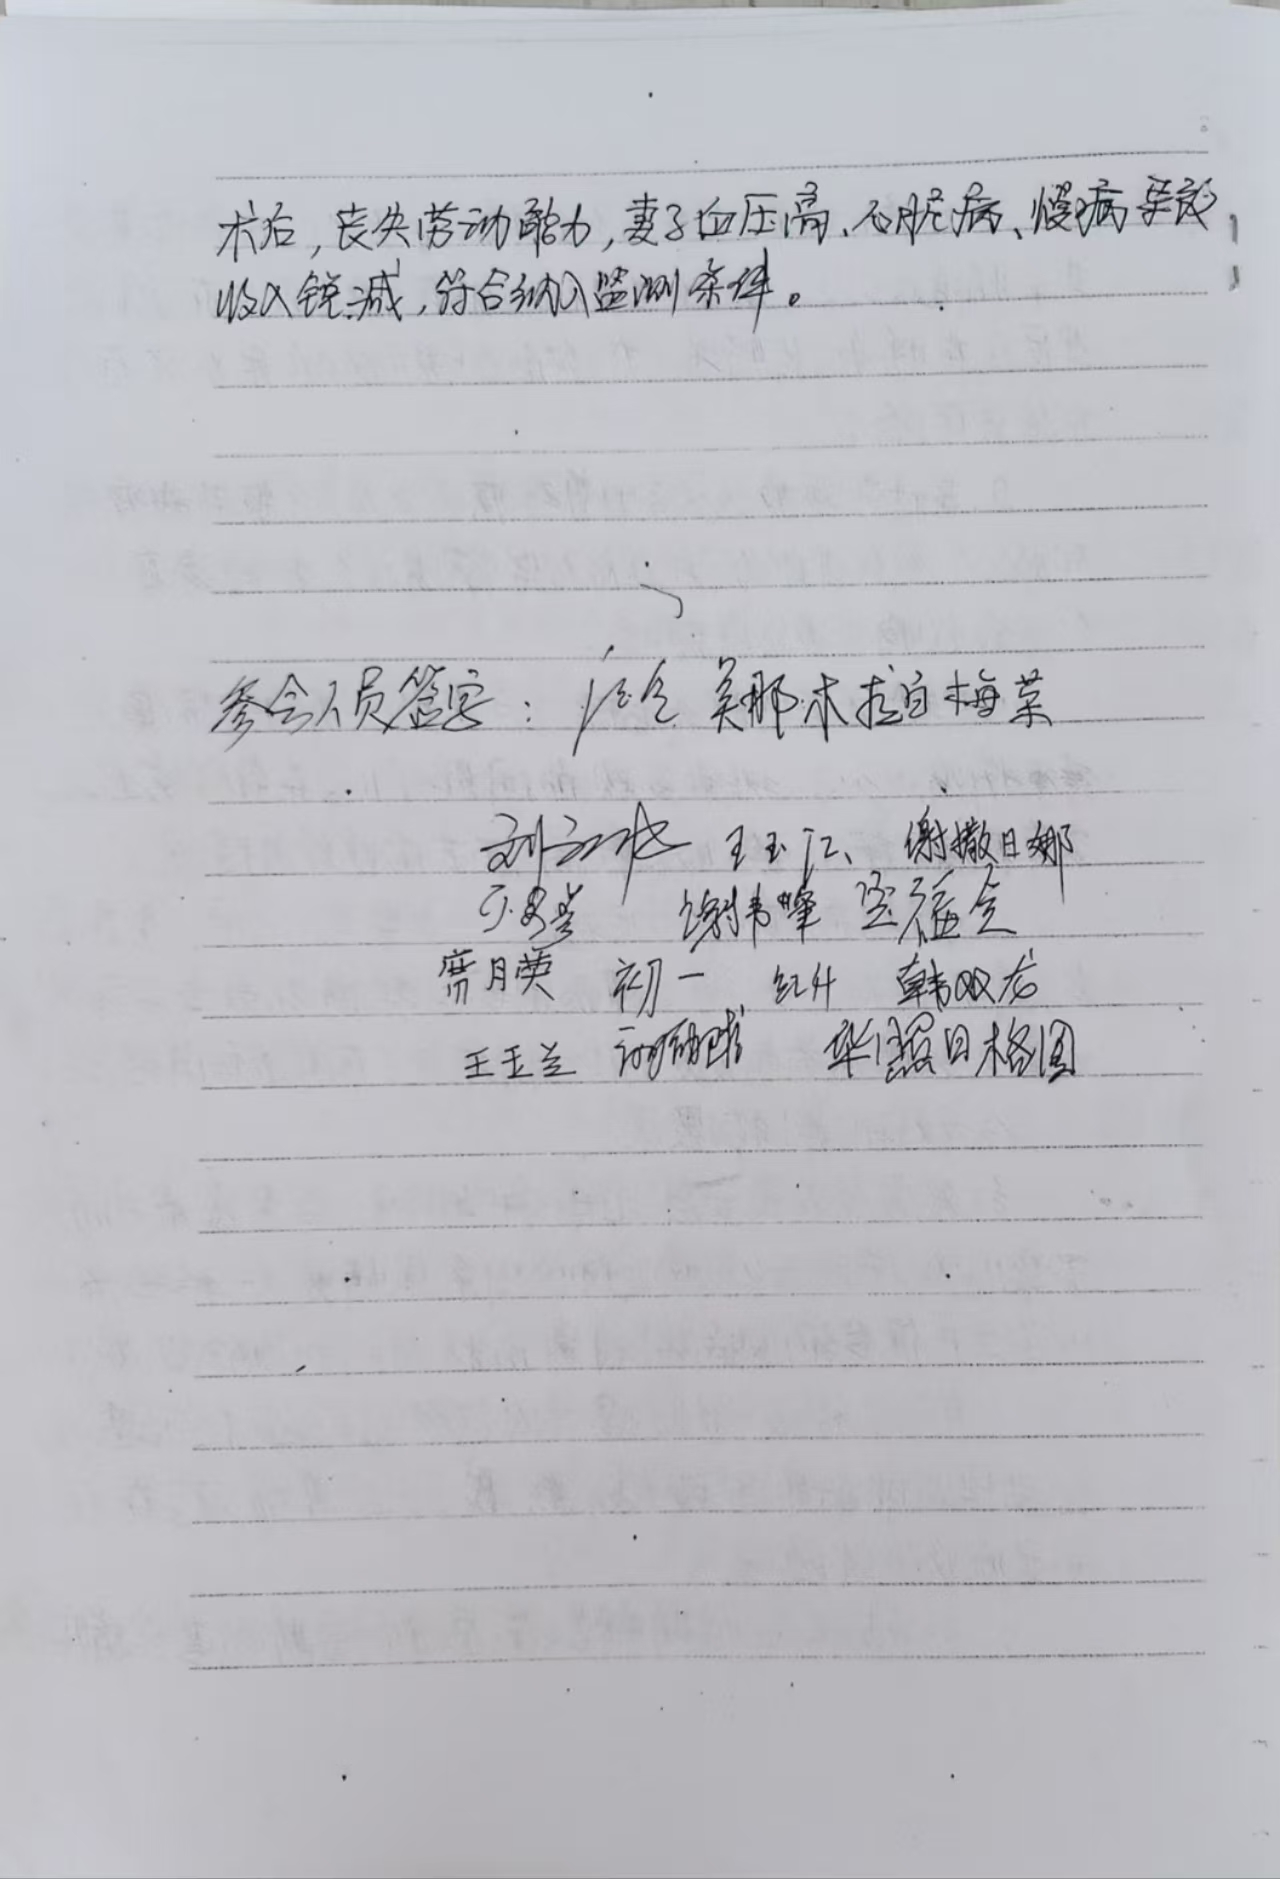 术后，丧失劳动能力，妻子血压高、心脏病、慢病导致
收入锐减，符合纳入监测条件。
参会人员签字： 吴那木拉 白梅菜
王玉江 谢撒日娜
谢韦峰
月英 初一 红升 韩双龙
王玉兰 照日格图